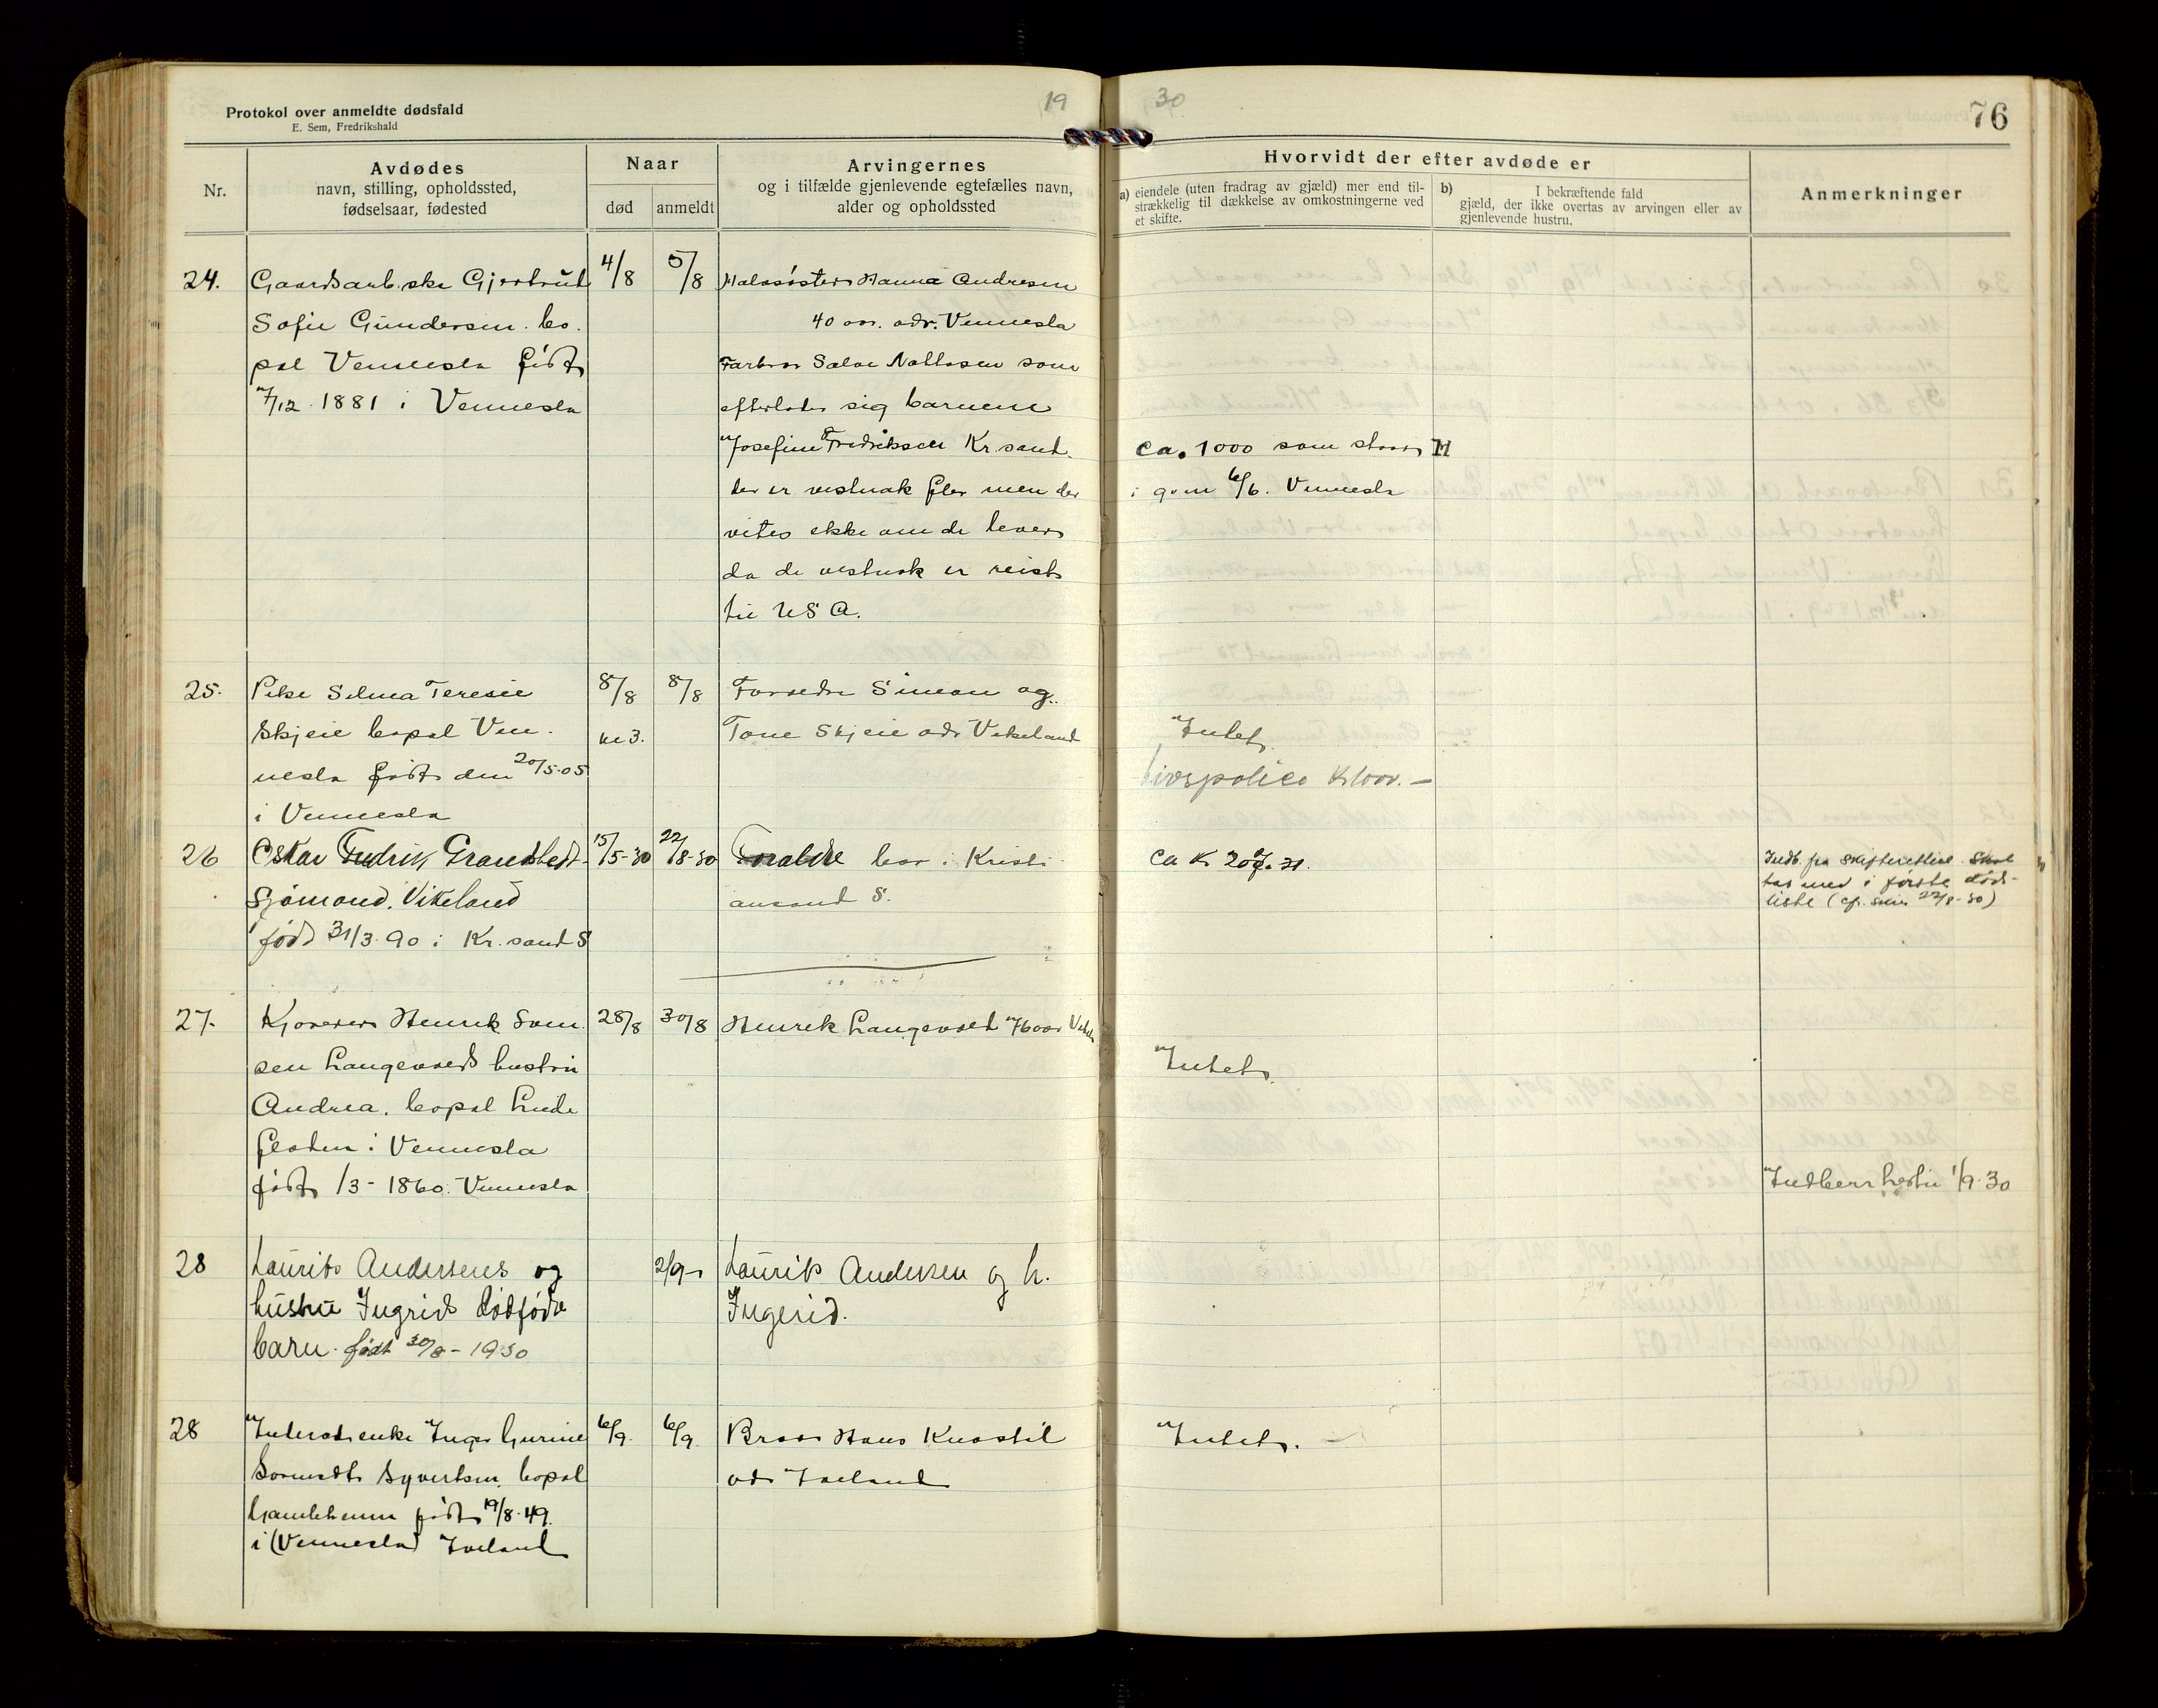 Protokol over anmeldte dødsfald
E. Sem, Fredrikshald
19 30
76
Nr.
Avdødes
navn, stilling, opholdssted,
fødselsaar, fødested
Naar
død
anmeldt
Arvingernes
og i tilfælde gjenlevende egtefælles navn,
alder og opholdssted
Hvorvidt der efter avdøde er
a) eiendele (uten fradrag av gjæld) mer end til-
strækkelig til dækkelse av omkostningerne ved
et skifte.
b) I bekræftende fald
gjæld, der ikke overtas av arvingen eller av
gjenlevende hustru.
Anmerkninger
24. Gaardsarb.ske Gjertrud
Sofie Gundersen. bo.
pal Vennesla født
7/12 1881 i Vennesla
4/8
5/8
Halvsøster Hanna Andresen
40 aar. adr. Vennesla
Farbror Salve som
efterlater sig barnene
Josefine Fredriksen Kr.sand.
der er vestnok fler men der
vites ikke om de lever
da de vestnok er reist
til USA.
ca. 1000 som staar
i 6/6. Vennesla
25. Pike Selma Teresie
Skjeie bopal Ven-
nesla født den 20/5-05
i Vennesla
8/8
kl 3.
8/8
Foreldre Simon og
Tone Skjeie adr Vikeland
Intet
Livspolice Kr 1000.-
26 Oskar Fredrik Grandstedt
Sjømand. Vikeland
født 31/3-90 i Kr.sand S
15/5-30
22/8-30
Foraldre bor i Kristi
ansand S.
ca Kr
Indb. fra Skifteretten. Skal
tas med i første døds-
liste (cfr. skriv 22/8-30)
27. Henrik
sen Langevold hustru
Andrea. bopal Lunde
i Vennesla
født 1/3-1860. Vennesla
28/8
30/8
Henrik Langevold 76 aar
Intet
1/9-30
28 Laurits Andersens og
hustru Ingrids dødfødte
barn. født 30/8-1930
2/9
Laurits Andersen og h.
Ingerid.
28 enke Inger Gurine
Syvertsen bopal
Gamlehjemm født 19/8-49.
i (Vennesla) Iveland
6/9.
6/9.
Bror Hans Knastil
adr Iveland
Intet.